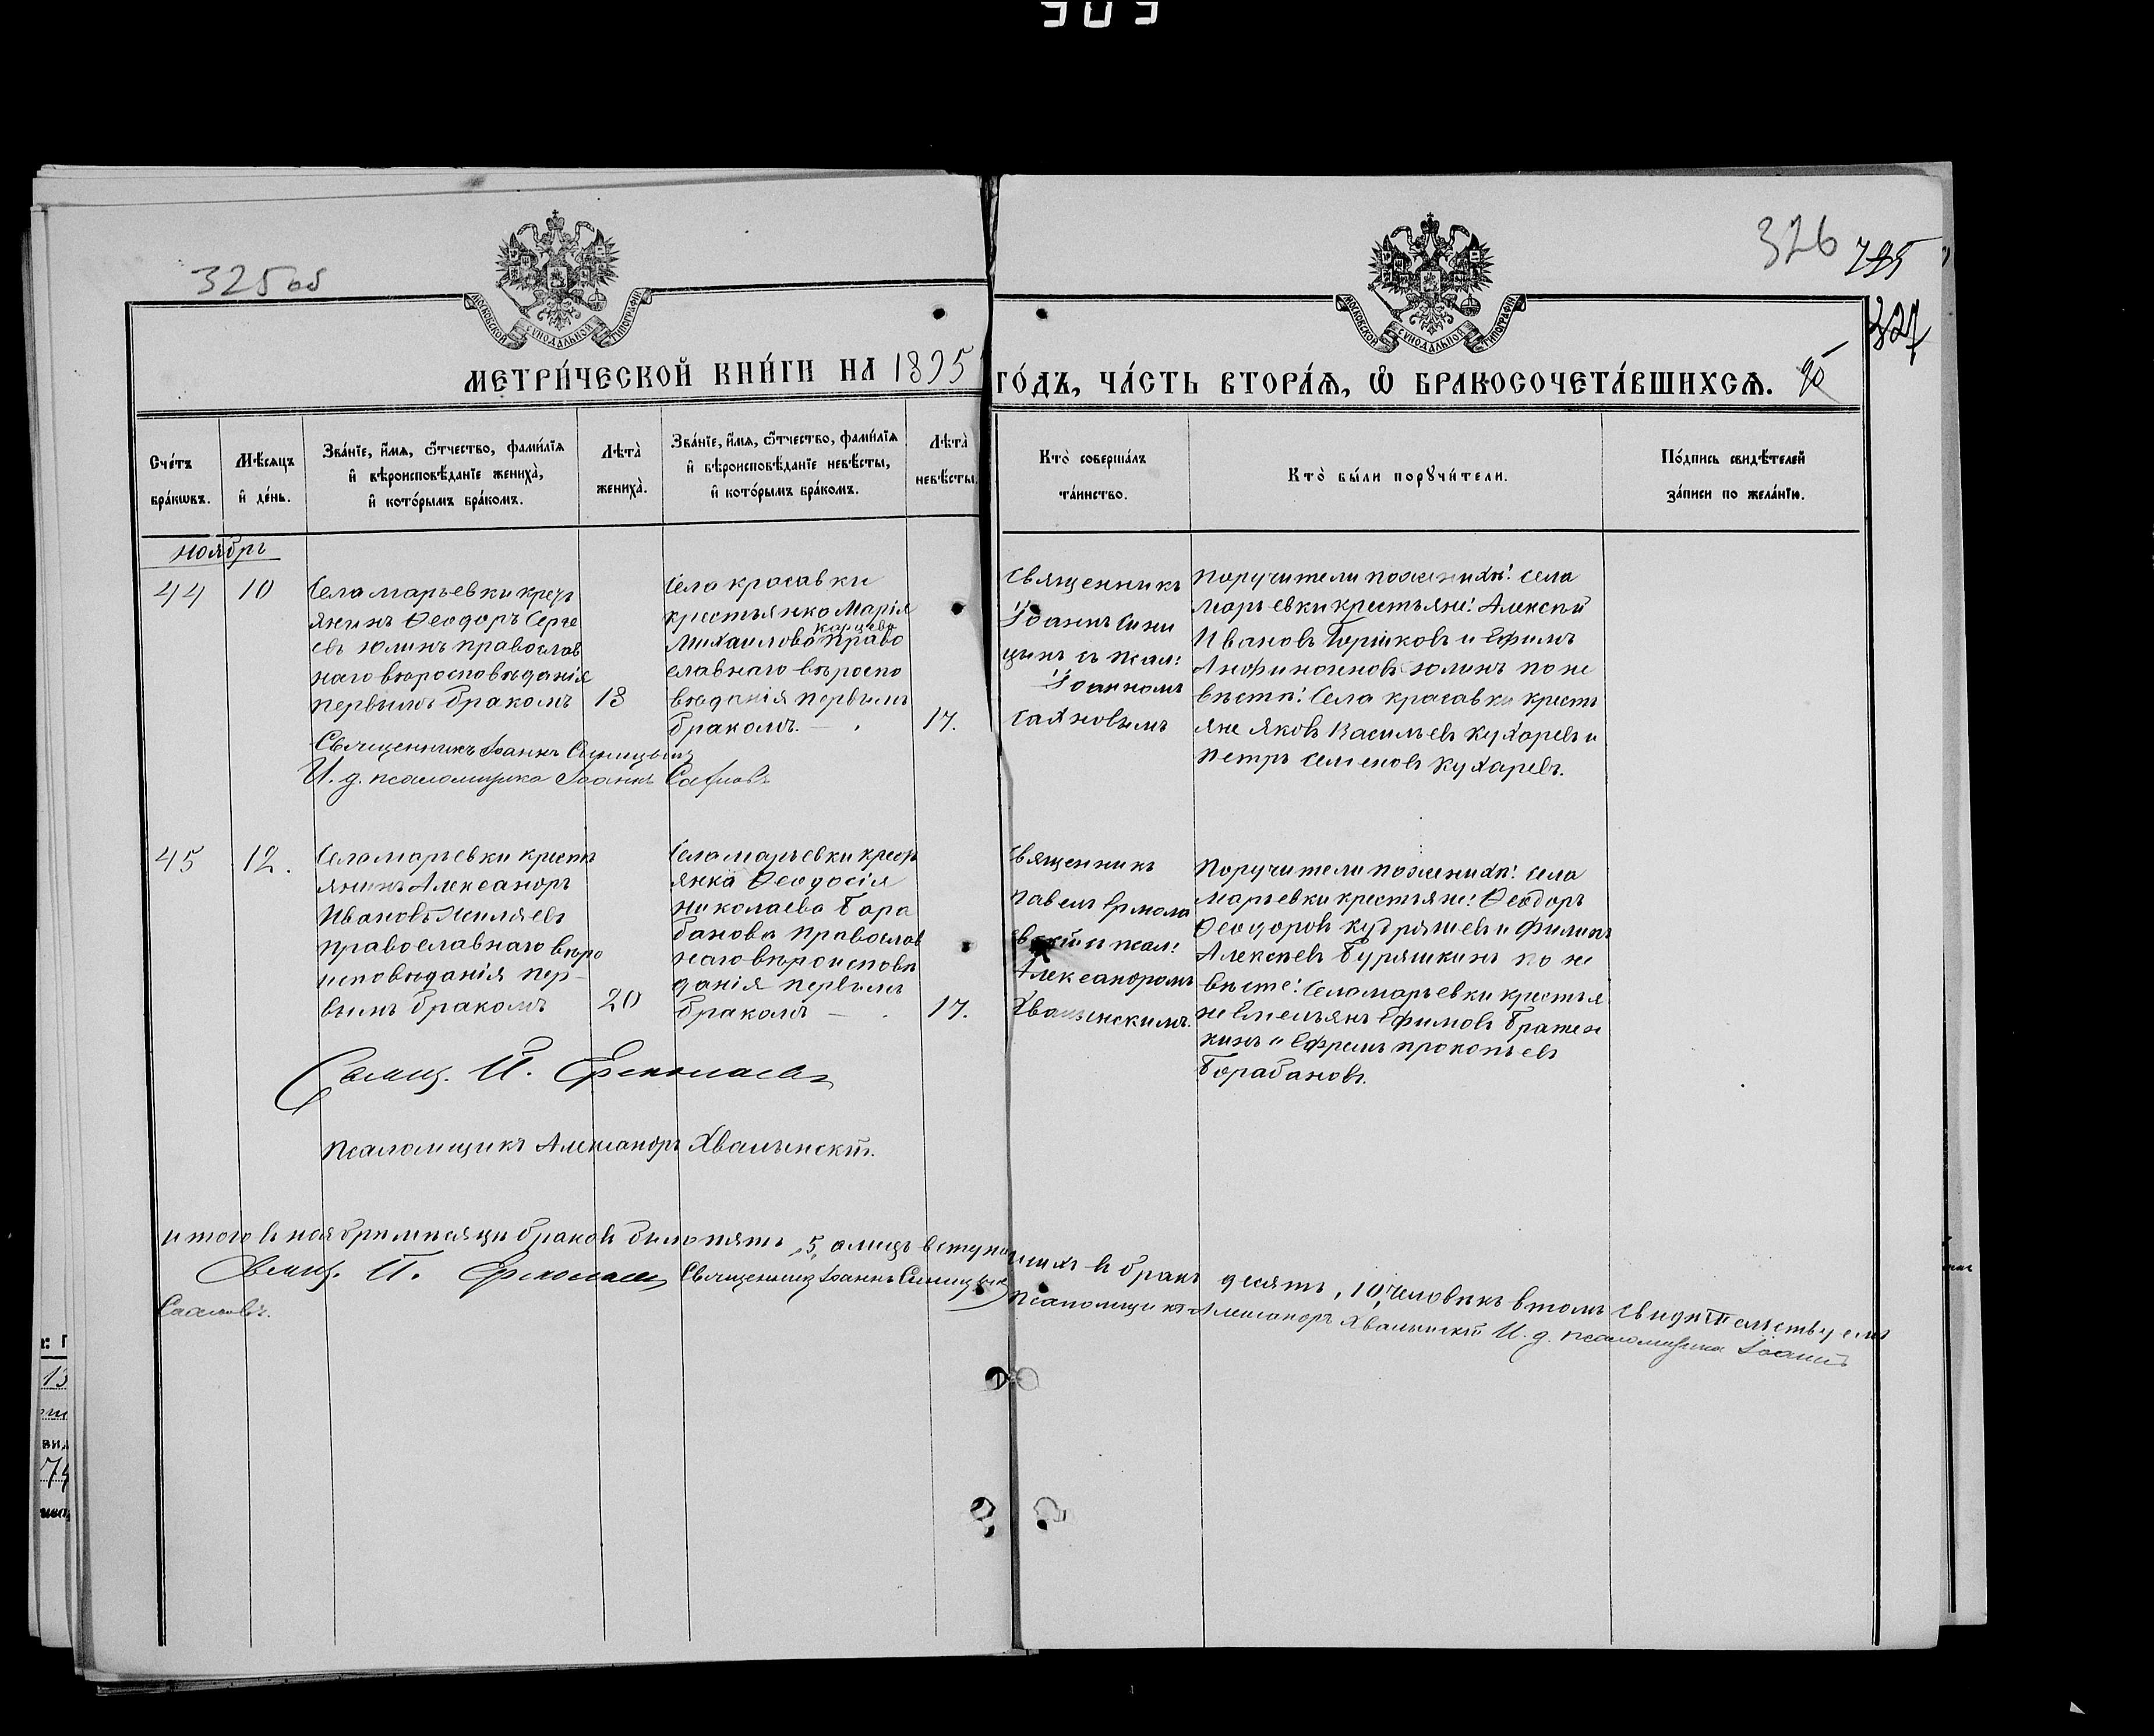 909
325 об
326
795
327
МОСКОВСКОЙ СѴНОДАЛЬНОЙ ТИПОГРАФІИ
МОСКОВСКОЙ СѴНОДАЛЬНОЙ ТИПОГРАФІИ
МЕТРИ́ЧЕСКОЙ КНИ́ГИ НА 1895
ГО́ДЪ, ЧА́СТЬ ВТОРА́Ѧ, Ѽ БРАКОСОЧЕТА́ВШИХСѦ.
Сче́тъ
бра́кѡвъ.
Мѣ́сяцъ
и҆ де́нь.
Зва́нїе, и҆́мѧ, ѻ҆́тчество, фами́лїѧ
и҆ вѣроисповѣ́данїе женихà,
и҆ кото́рымъ бра́комъ.
Лѣ́тà
женихà.
Зва́нїе, и҆́мѧ, ѻ҆́тчество, фами́лїѧ
и҆ вѣроисповѣ́данїе невѣ́сты,
и҆ кото́рымъ бра́комъ.
Лѣ́тà
невѣ́сты.
Ктò соверша́лъ
та́инство.
Ктò бы́ли порꙋчи́тели.
По́дпись свидѣ́телей
за́писи по жела́нїю.
ноябрь
44
10
Села марьевки крест
янинъ Ѳеодоръ Серге
евъ Юлинъ православ
наго вѣроисповѣданія
первымъ бракомъ
18
Села красавки
крестьянка Марія
Михаилова Карцева право
славнаго вѣроиспо
вѣданія первымъ
бракомъ.
17.
Священникъ
Іоаннъ Сини
цынъ съ псал:
Іоанномъ
Сахновымъ
Поручители по женихѣ: села
марьевки крестьяне: Алексѣй
Ивановъ Горшковъ и Ефимъ
Анфиногеновъ Юлинъ по не
вѣстѣ: Села красавки кресть
яне Яковъ Васильевъ Кухаревъ и
Петръ Семеновъ Кухаревъ.
Священникъ Іоаннъ Синицынъ
И. д. псаломщика Іоаннъ Сахновъ
45
12.
Села марьевки кресть
янинъ Александръ
Ивановъ Миляевъ
православнаго вѣро
исповѣданія пер-
вымъ бракомъ
20
Села марьевки крест
янка Ѳеодосія
Николаева Бара
банова православ
наго вѣроисповѣ
данія первымъ
бракомъ
17.
Священникъ
Павелъ Ермола
евъ съ псал:
Александромъ
Хвалынскимъ.
Поручители по женихѣ: села
марьевки крестьяне: Ѳеодоръ
Ѳеодоровъ Кудряшевъ и Филипъ
Алексѣевъ Буряшкинъ по не
вѣсте: Села марьевки крестья
не Емельянъ Ефимовъ Бражен
кинъ и Ефремъ Прокопьевъ
Барабановъ.
Свящ. П. Ермолаевъ
Псаломщикъ Александръ Хвалынскій.
итого въ ноябрѣ мѣсяцѣ браковъ было пять „5„ а лицъ вступившихъ въ бракъ десять „10„ человѣкъ въ томъ свидѣтельствуемъ
Свящ. П. Ермолаевъ Священникъ Іоаннъ Синицынъ Псаломщикъ Александръ Хвалынскій И. д. псаломщика Іоаннъ
Сахновъ.